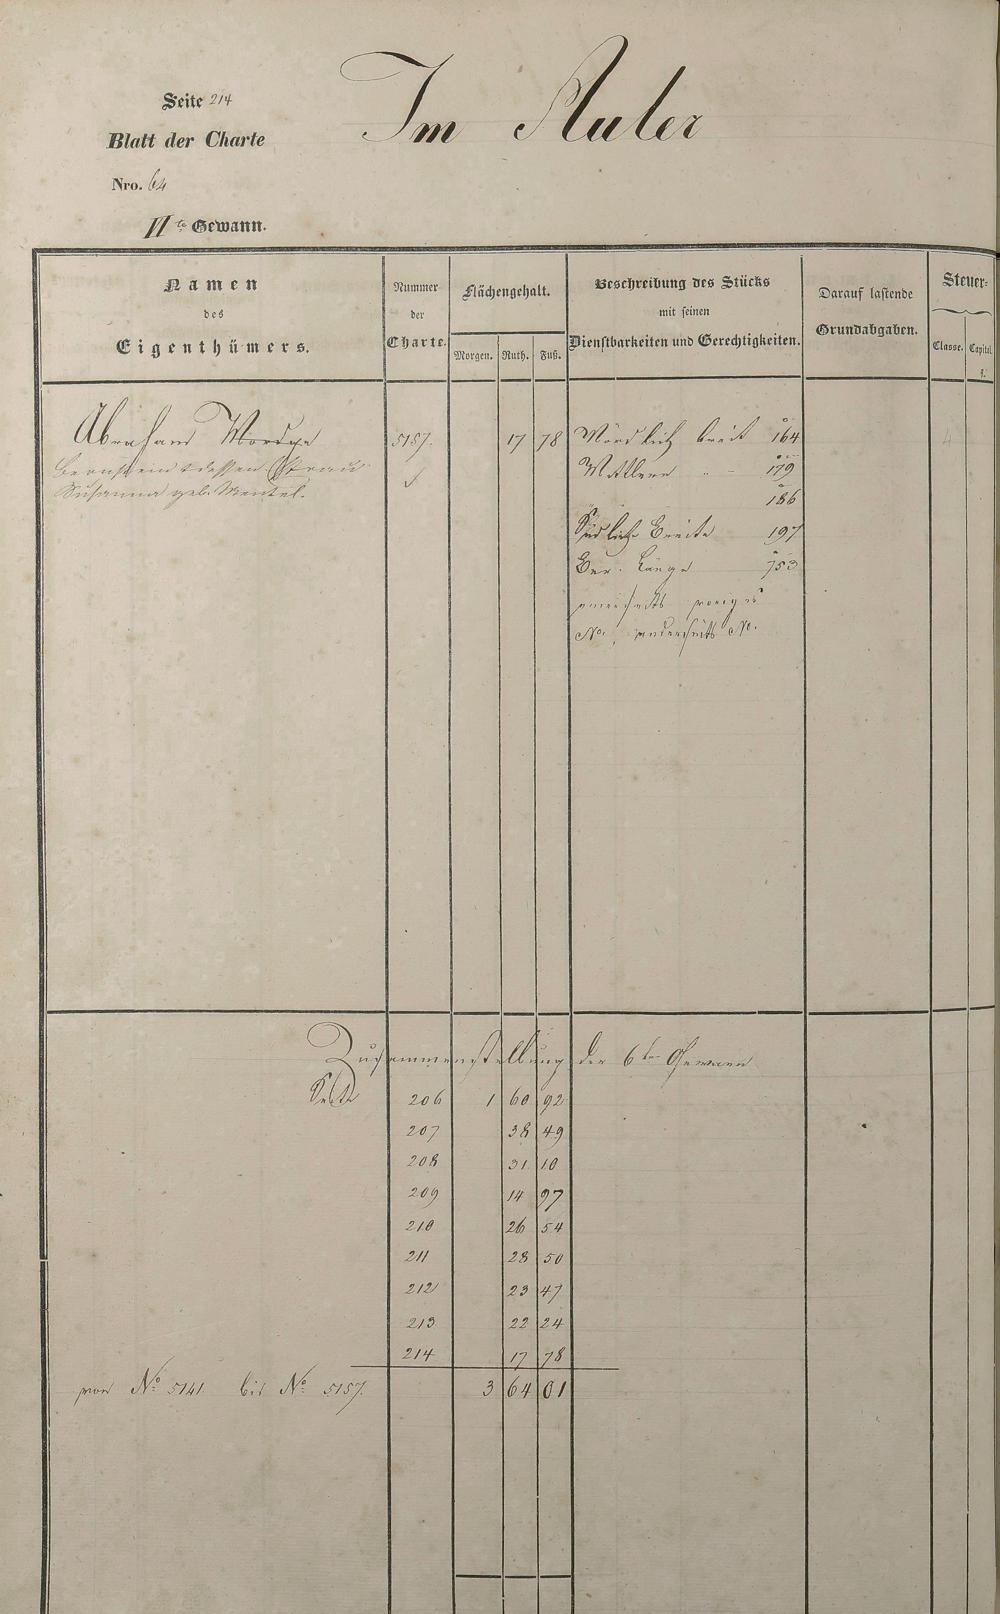 Im Auler
Seite 214
Blatt der Charte
Nro. 64
IIte Gewann.
Namen
des
Eigenthümers.
Nummer
der
Charte.
Flächengehalt.
Morgen. Ruth. Fuß.
Beschreibung des Stücks
mit seinen
Dienstbarkeiten und Gerechtigkeiten.
Darauf lastende
Grundabgaben.
Steuer-
Classe. Capital
fl.
Abraham 5157. 17 78 Nördlich breit 164
Bernstein & dessen Frau Mittlere 179
Susanna geb. Mentel. 186
Südliche Breite 197
Länge 953
einerseits voriges
No., anderseits No.
Zusammenstellung der 6ten Gewann
Seite 206 1 60 92
207 38 49
208 31 10
209 14 97
210 26 54
211 28 50
212 23 47
213 22 24
214 17 78
von No. 5141 bis No. 5157. 3 64 01